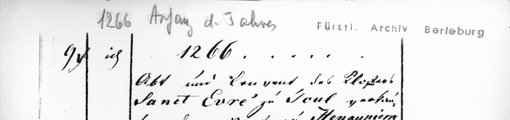 1266 Anfang d. Jahres
Fürstl. Archiv Berleburg
1266 . . . . .
Abt und Convent des Klosters
Sanct Evre zu Toul
zu